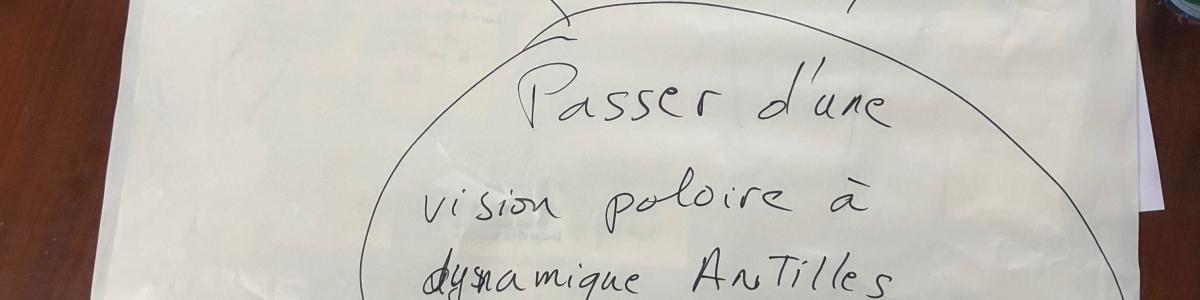 Passer d'une
vision poloire à
dynamique AnTilles